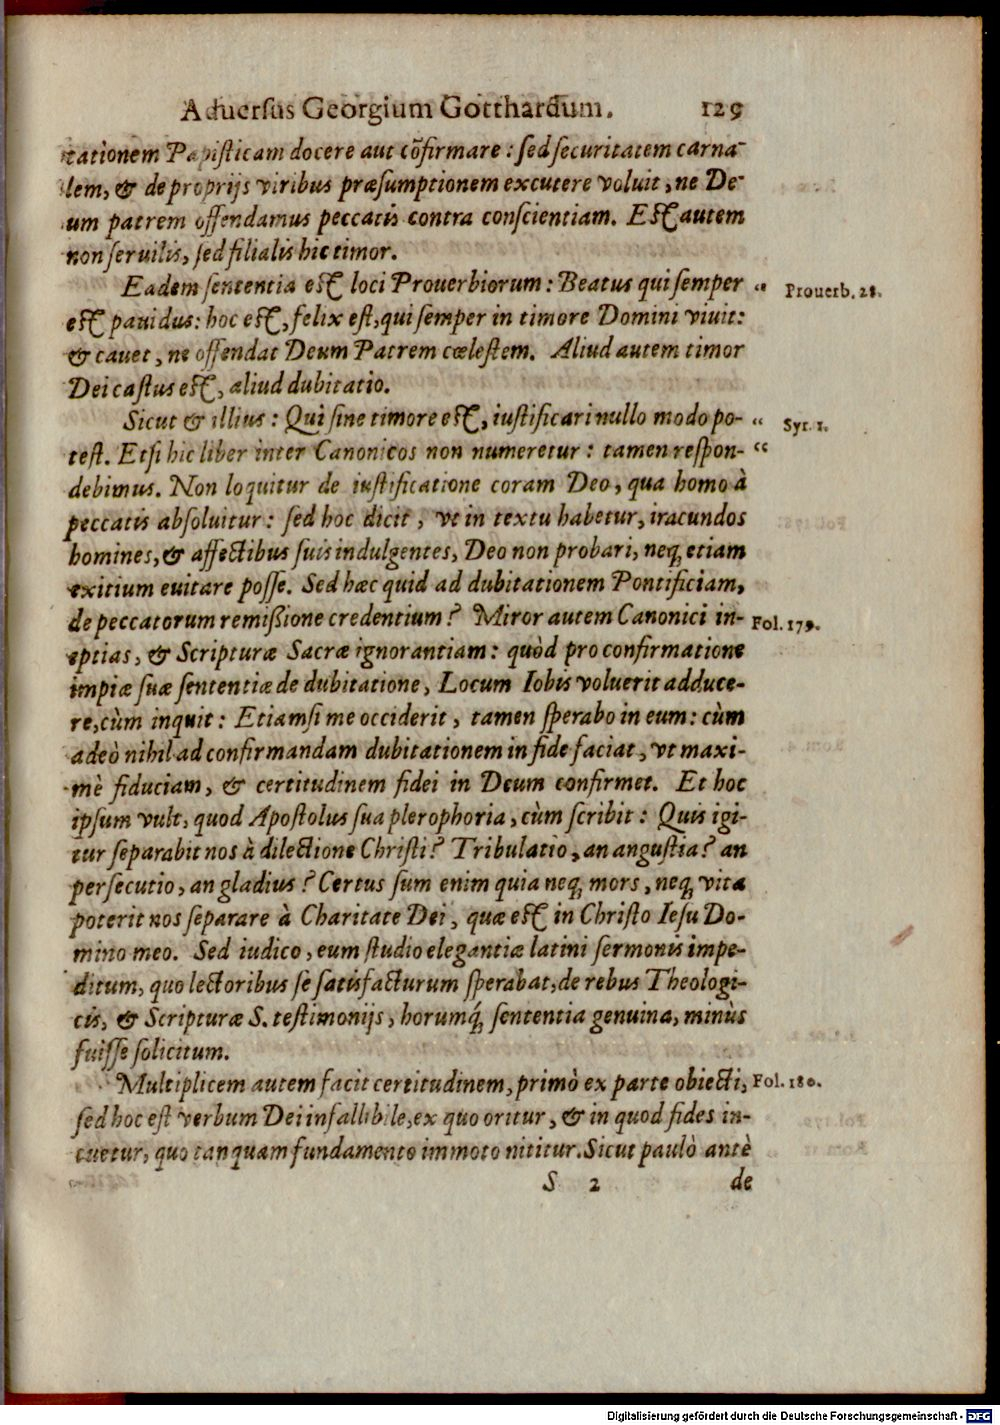 Aduersus Georgium Gotthardum. 129
tationem Papisticam docere aut cõfirmare : sed securitatem carna-
lem, & de proprijs viribus præsumptionem excutere voluit, ne De-
um patrem offendamus peccatis contra conscientiam. Est autem
non seruilis, sed filialis hic timor.
Eadem sententia est loci Prouerbiorum : Beatus qui semper “ Prouerb. 28.
est pauidus: hoc est, felix est, qui semper in timore Domini viuit:
& cauet, ne offendat Deum Patrem cœlestem. Aliud autem timor
Dei castus est, aliud dubitatio.
Sicut & illius : Qui sine timore est, iustificari nullo modo po- “ Syr. 1.
test. Etsi hic liber inter Canonicos non numeretur : tamen respon- “
debimus. Non loquitur de iustificatione coram Deo, qua homo à
peccatis absoluitur : sed hoc dicit, vt in textu habetur, iracundos
homines, & affectibus suis indulgentes, Deo non probari, neq; etiam
exitium euitare posse. Sed hæc quid ad dubitationem Pontificiam,
de peccatorum remißione credentium? Miror autem Canonici in- Fol. 179.
eptias, & Scripturæ Sacræ ignorantiam : quòd pro confirmatione
impiæ suæ sententiæ de dubitatione, Locum Iobis voluerit adduce-
re, cùm inquit : Etiamsi me occiderit, tamen sperabo in eum : cùm
adeò nihil ad confirmandam dubitationem in fide faciat, vt maxi-
mè fiduciam, & certitudinem fidei in Deum confirmet. Et hoc
ipsum vult, quod Apostolus sua plerophoria, cùm scribit : Quis igi-
tur separabit nos à dilectione Christi? Tribulatio, an angustia? an
persecutio, an gladius? Certus sum enim quia neq; mors, neq; vita
poterit nos separare à Charitate Dei, quæ est in Christo Iesu Do-
mino meo. Sed iudico, eum studio elegantiæ latini sermonis impe-
ditum, quo lectoribus se satisfacturum sperabat, de rebus Theologi-
cis, & Scripturæ S. testimonijs, horumq́; sententia genuina, minùs
fuisse solicitum.
Multiplicem autem facit certitudinem, primò ex parte obiecti, Fol. 180.
sed hoc est verbum Dei infallibile, ex quo oritur, & in quod fides in-
tuetur, quo tanquam fundamento immoto nititur. Sicut paulò antè
S 2 de
Digitalisierung gefördert durch die Deutsche Forschungsgemeinschaft - DFG